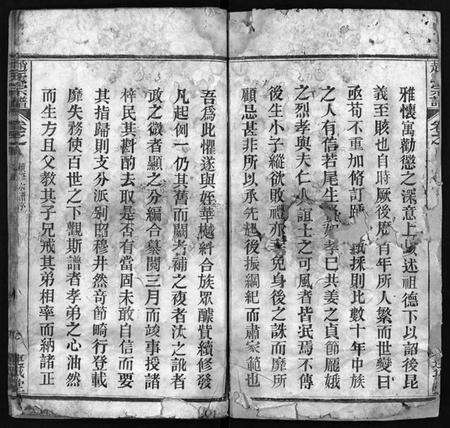 雅懷寓勸懲之深意上以述祖德下以詔後昆
義至賅也自時厥後歷百年所人繁而世變曰
亟苟不重加脩訂蹤採則比數十年中族
之人有信若尾生孝如孝已共美之貞節龐娥
之烈孝與夫仁人誼士之可風者皆泯焉不傳
後生小子縱欲敗禮亦免身後之誅而靡所
顧忌甚非所以承先起後振綱紀而肅家範也
吾為此懼遂與姪華樾糾合族眾醵貲續修發
凡起例一仍其舊而闕者補之複者汰之訛者
政之微者顯之分纂合纂閱三月而竣事授諸
梓民其斟酌去取是否有當固未敢自信而要
其指歸則支分派別昭穆井然奇節畸行登載
靡失務使百世之下觀斯譜者孝弟之心油然
而生方且父教其子兄戒其弟相率而納諸正